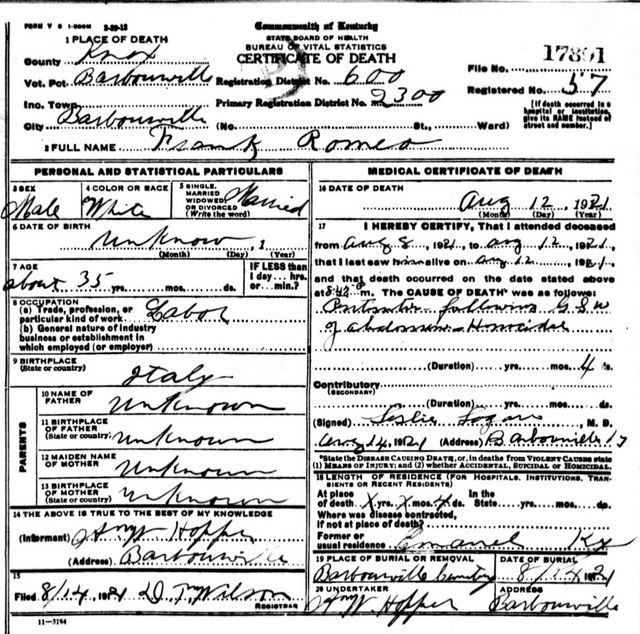 FORM V S 1-500M 3-29-12
Commonwealth of Kentucky
STATE BOARD OF HEALTH
BUREAU OF VITAL STATISTICS
CERTIFICATE OF DEATH
1 PLACE OF DEATH
County Knox
Vot. Pct Barbourville
Inc. Town
City Barbourville
Registration District No. 600
Primary Registration District No. 2300
(No. St., Ward)
File No. 17891
Registered No. 57
[If death occurred in a
hospital or institution,
give its NAME instead of
street and number.]
2 FULL NAME Frank Romeo
PERSONAL AND STATISTICAL PARTICULARS
3 SEX
Male
4 COLOR OR RACE
White
5 SINGLE,
MARRIED
WIDOWED
OR DIVORCED
(Write the word)
Married
6 DATE OF BIRTH
Unknow , 1
(Month) (Day) (Year)
7 AGE
about 35 yrs. mos. ds.
IF LESS than
1 day... hrs.
or... min.?
8 OCCUPATION
(a) Trade, profession, or
particular kind of work Labor
(b) General nature of industry
business or establishment in
which employed (or employer)
9 BIRTHPLACE
(State or country)
Italy
PARENTS
10 NAME OF
FATHER Unknown
11 BIRTHPLACE
OF FATHER
(State or country) Unknown
12 MAIDEN NAME
OF MOTHER Unknown
13 BIRTHPLACE
OF MOTHER
(State or country) Unknown
14 THE ABOVE IS TRUE TO THE BEST OF MY KNOWLEDGE
(Informant) Hopper
(Address) Barbourville
15
Filed 8/14, 1921 Wilson
REGISTRAR
11-3184
MEDICAL CERTIFICATE OF DEATH
16 DATE OF DEATH
Aug 12, 1921
(Month) (Day) (Year)
17 I HEREBY CERTIFY, That I attended deceased
from Aug 8, 1921, to Aug 12, 1921,
that I last saw him alive on Aug 12, 1921,
and that death occurred on the date stated above
at m. The CAUSE OF DEATH* was as follows:
following G.S.W
of abdomen - Homicide
(Duration) yrs. mos. 4 ds.
Contributory
(SECONDARY)
(Duration) yrs. mos. ds.
(Signed) Leslie Logan, M. D.
Aug 14, 1921 (Address) Barbourville Ky
*State the DISEASE CAUSING DEATH, or, in deaths from VIOLENT CAUSES state
(1) MEANS OF INJURY; and (2) whether ACCIDENTAL, SUICIDAL or HOMICIDAL.
18 LENGTH OF RESIDENCE (FOR HOSPITALS, INSTITUTIONS, TRANSIENTS OR RECENT RESIDENTS)
At place
of death X yrs. X mos. 4 ds.
In the
State yrs. mos. ds.
Where was disease contracted,
if not at place of death?
Former or
usual residence Emanuel Ky
19 PLACE OF BURIAL OR REMOVAL
Barbourville Cemetery
DATE OF BURIAL
8/14, 1921
20 UNDERTAKER
Hopper
ADDRESS
Barbourville